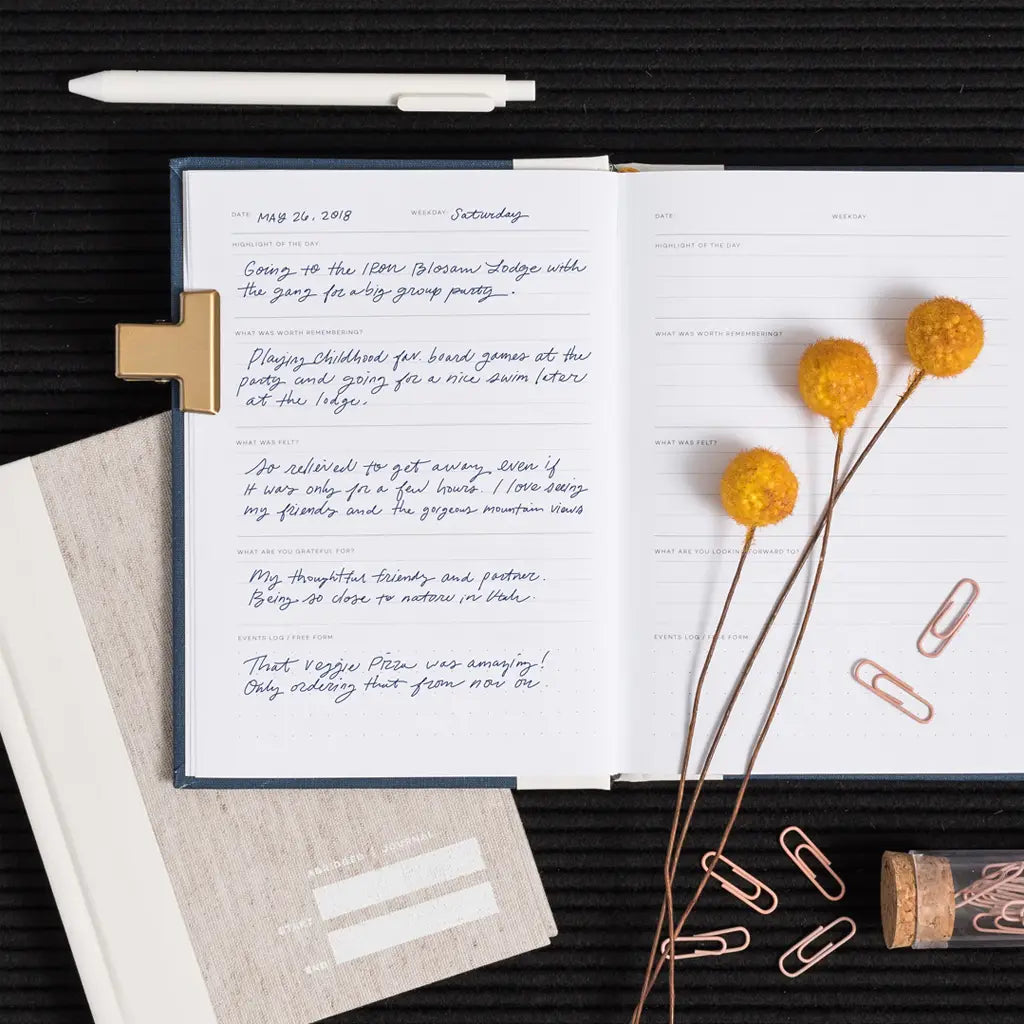 DATE: MAY 26, 2018 WEEKDAY: Saturday
HIGHLIGHT OF THE DAY
Going to the IRON Blosam Lodge with
the gang for a big group party.
WHAT WAS WORTH REMEMBERING?
Playing childhood fav. board games at the
party and going for a nice swim later
at the lodge.
WHAT WAS FELT?
So relieved to get away even if
it was only for a few hours. I love seeing
my friends and the gorgeous mountain views
WHAT ARE YOU GRATEFUL FOR?
My thoughtful friends and partner.
Being so close to nature in Utah.
EVENTS LOG / FREE FORM
That veggie Pizza was amazing!
Only ordering that from now on.
DATE: WEEKDAY:
HIGHLIGHT OF THE DAY
WHAT WAS WORTH REMEMBERING?
WHAT WAS FELT?
WHAT ARE YOU LOOKING FORWARD TO?
EVENTS LOG / FREE FORM
ABRIDGED JOURNAL
START
END